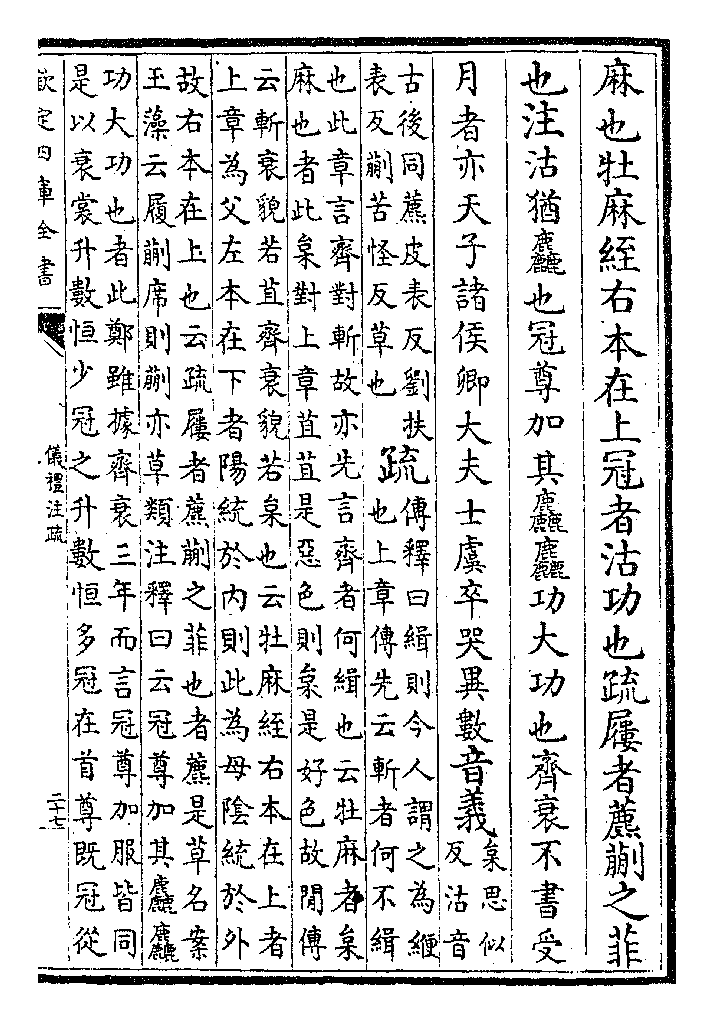 麻也牡麻絰右本在上冠者沽功也疏屨者藨蒯之菲
也注沽猶麤也冠尊加其麤麤功大功也齊衰不書受
月者亦天子諸侯卿大夫士虞卒哭異數音義枲思似
反沽音
古後同藨皮表反劉扶
表反蒯苦怪反草也
疏傳釋曰緝則今人謂之為緶
也上章傳先云斬者何不緝
也此章言齊對斬故亦先言齊者何緝也云牡麻者枲
麻也者此枲對上章苴苴是惡色則枲是好色故閒傳
云斬衰貌若苴齊衰貌若枲也云牡麻絰右本在上者
上章為父左本在下者陽統於内則此為母陰統於外
故右本在上也云疏屨者藨蒯之菲也者藨是草名案
玉藻云履蒯席則蒯亦草類注釋曰云冠尊加其麤麤
功大功也者此鄭雖據齊衰三年而言冠尊加服皆同
是以衰裳升數恒少冠之升數恒多冠在首尊既冠從
欽定四庫全書
儀禮注疏
二十七